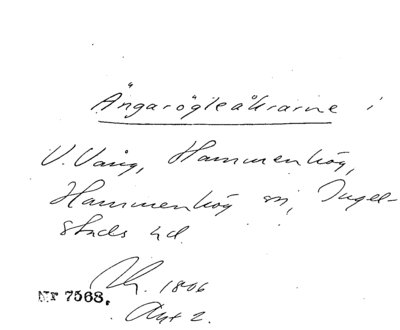 Ängarögleåkrarne i
V. Vång, Hammenhög,
Hammenhög sn, Ingel-
stads hd.
1806
Nr 7568.
Akt 2.